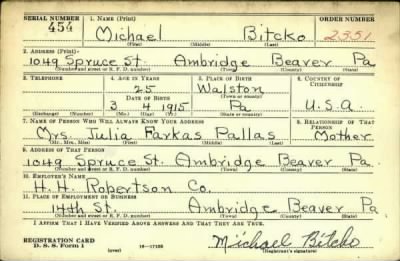 SERIAL NUMBER 1. NAME (Print) ORDER NUMBER
454 Michael Bitcko 2551
(First) (Middle) (Last)
2. ADDRESS (Print)
1049 Spruce St. Ambridge Beaver Pa
(Number and street or R. F. D. number) (Town) (County) (State)
3. TELEPHONE 4. AGE IN YEARS 5. PLACE OF BIRTH 6. COUNTRY OF CITIZENSHIP
25 Walston
DATE OF BIRTH (Town or county)
3 4 1915 Pa U.S.A
(Exchange) (Number) (Mo.) (Day) (Yr.) (State or country)
7. NAME OF PERSON WHO WILL ALWAYS KNOW YOUR ADDRESS 8. RELATIONSHIP OF THAT PERSON
Mrs. Julia Farkas Pallas Mother
(Mr., Mrs., Miss) (First) (Middle) (Last)
9. ADDRESS OF THAT PERSON
1049 Spruce St. Ambridge Beaver Pa.
(Number and street or R. F. D. number) (Town) (County) (State)
10. EMPLOYER'S NAME
H. H. Robertson Co.
11. PLACE OF EMPLOYMENT OR BUSINESS
14th St. Ambridge Beaver Pa
(Number and street or R. F. D. number) (Town) (County) (State)
I AFFIRM THAT I HAVE VERIFIED ABOVE ANSWERS AND THAT THEY ARE TRUE.
REGISTRATION CARD
D. S. S. Form 1 (over) Michael Bitcko
(Registrant's signature)